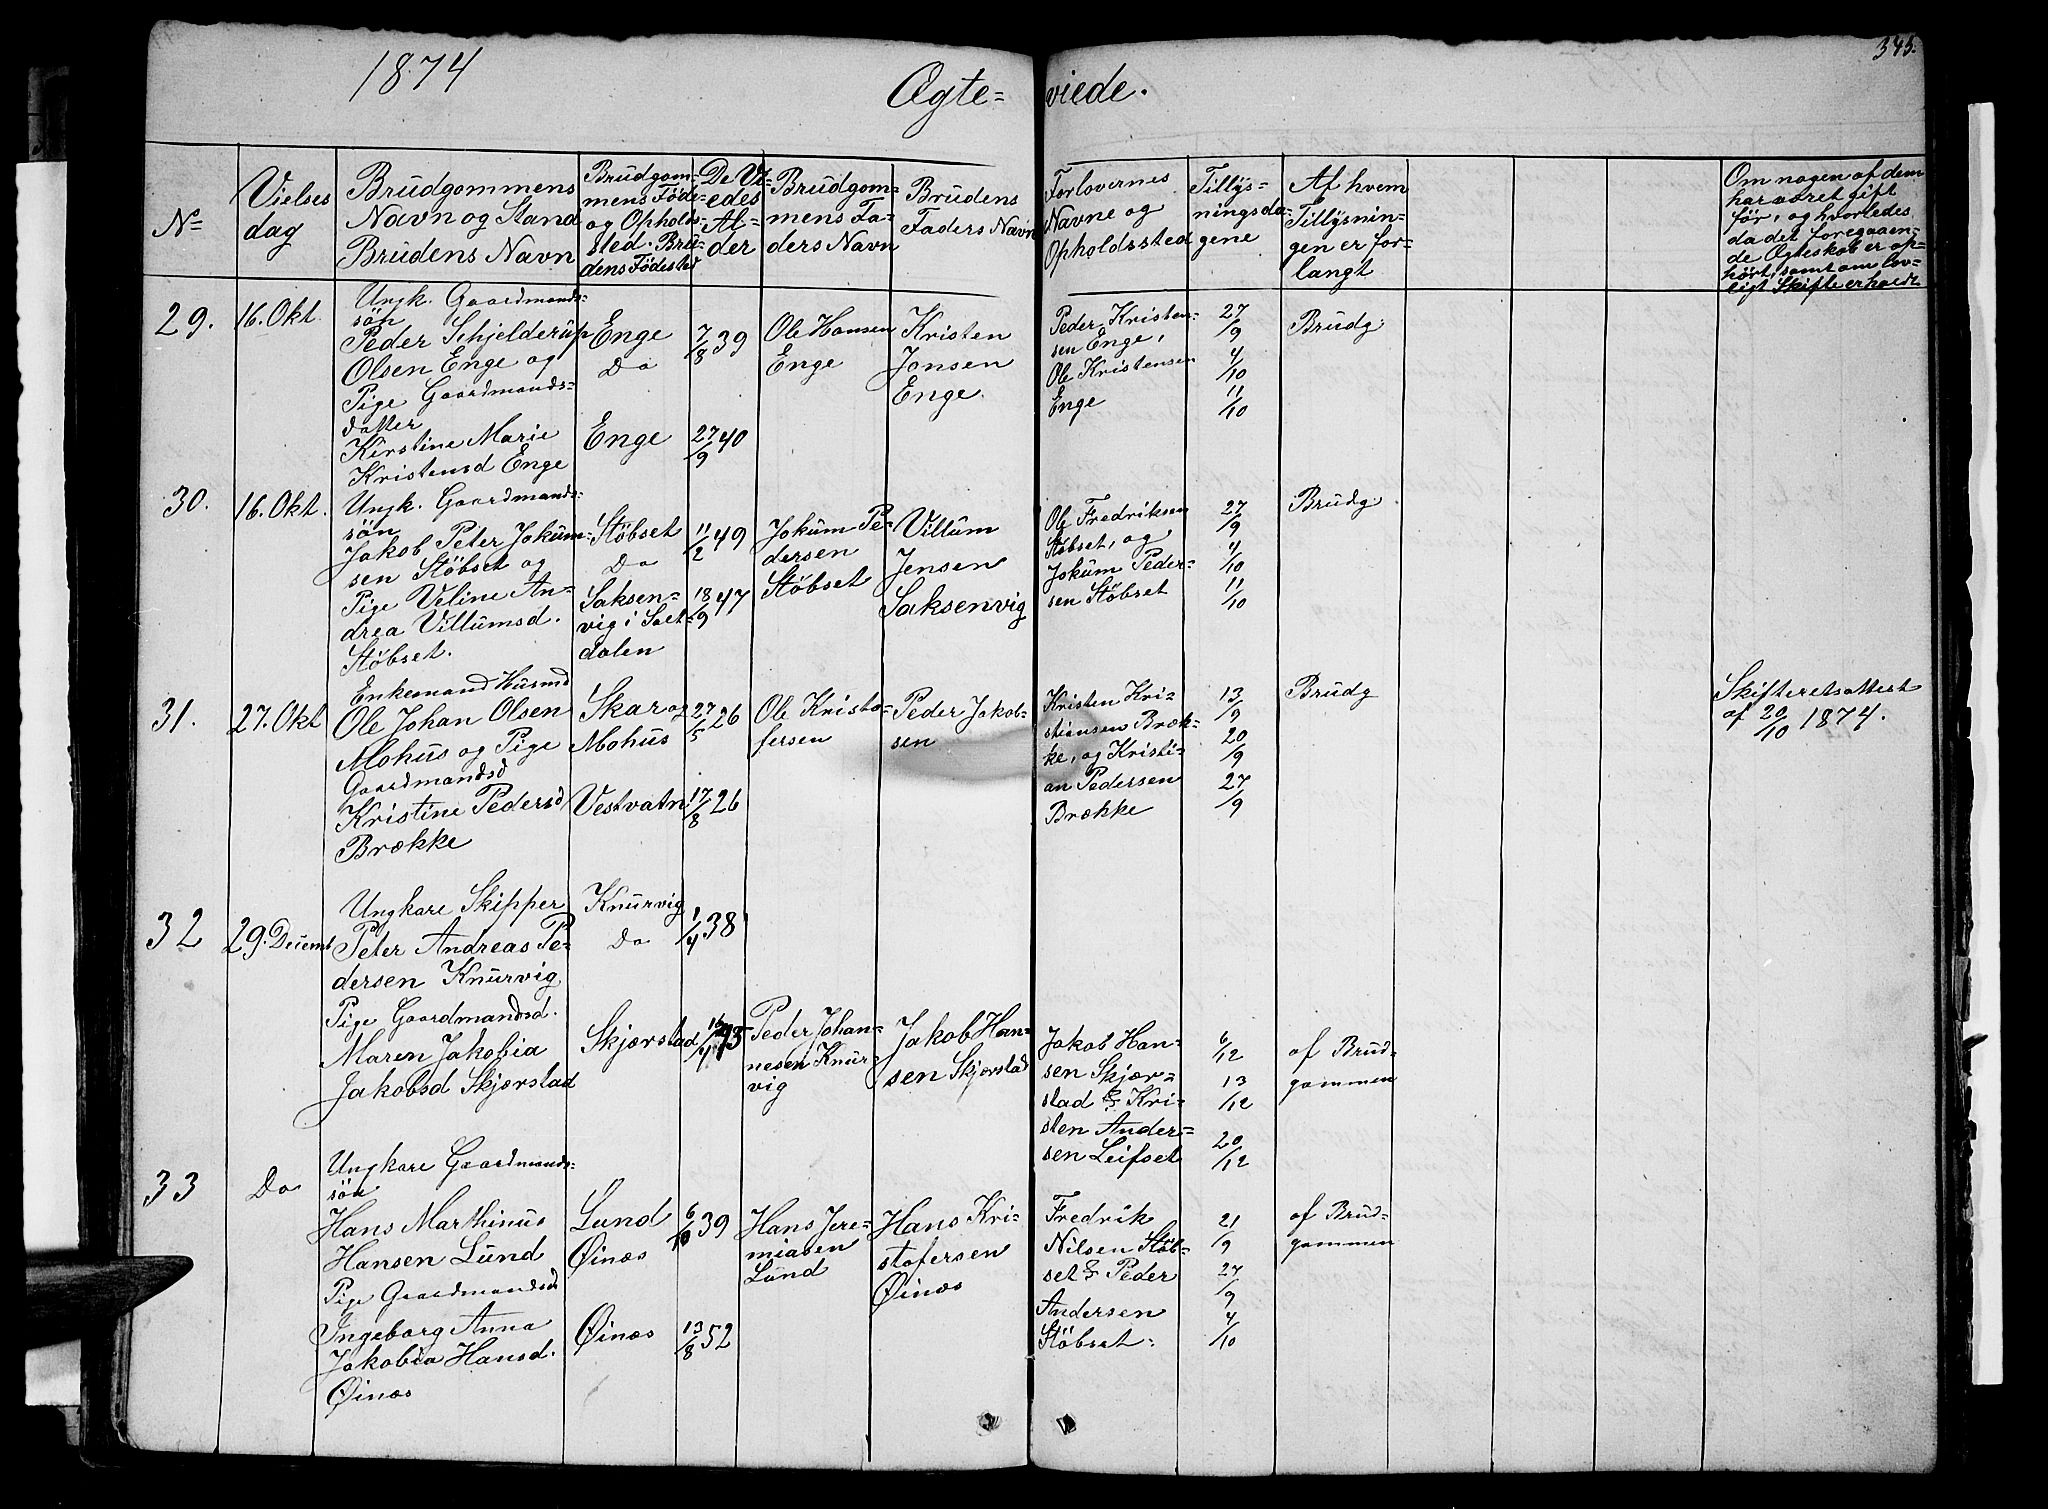 345.
1874
Ægte= viede.
No
Vielses
dag
Brudgommens
Navn og Stand
Brudens Navn
Brudgom-
mens Føde=
og Opholds-
sted. Bru-
dens Fødested
De Vi-
edes
Al-
der
Brudgom-
mens Fa-
ders Navn
Brudens
Faders Navn
Forlovernes
Navne og
Opholdssted
Tillys-
ningsda-
gene
Af hvem
Tillysnin-
gen er for-
langt
Om nogen af dem
har været gift
før, og hvorledes
da det foregaaen-
de Ægteskab er op-
hørt, samt om lov-
ligt Skifte er holdt
29.
16. Okt.
Ungk. Gaardmands-
søn
Peder Schjelderup
Olsen Enge og
Pige Gaardmands=
datter
Kirstine Marie
Kristensd Enge
Enge
Do
Enge
7/8 39
27/9 40
Ole Hansen
Enge
Kristen
Jonsen
Enge.
Peder Kristen-
sen Enge,
Ole Kristensen
Enge
27/9
4/10
11/10
Brudg.
30.
16. Okt.
Ungk. Gaardmands-
søn
Jakob Peter Jokum-
sen Støbset og
Pige Veline An-
drea Villumsd.
Støbset.
Støbset
Do
Saksen-
vig i Salt-
dalen
11/2 49
18/9 47
Jokum Pe-
dersen
Støbset
Villum
Jensen
Saksenvig
Ole Fredriksen
Støbset, og
Jokum Peder-
sen Støbset
27/9
4/10
11/10
Brudg.
31.
27. Okt
Enkemand Husmd
Ole Johan Olsen
Mohus og Pige
Gaardmandsd
Kristine Pedersd
Brække
Skar og
Mohus
Vestvatn
27/5 26
17/8 26
Ole Kristo-
fersen
Peder Jakob-
sen
Kristen Kri-
stiansen Bræk-
ke, og Kristi-
an Pedersen
Brække
13/9
20/9
27/9
Brudg
Skifteretsattest
af 20/10 1874.
32
29. Decembr
Ungkare Skipper
Peter Andreas Pe-
dersen Knurvig
Pige Gaardmandsd.
Maren Jakobia
Jakobsd Skjærstad
Knurvig
Do
Skjærstad
1/4 38
Peder Johan-
nesen Knur-
vig
Jakob Han-
sen Skjærstad
Jakob Han-
sen Skjær-
stad & Kri-
sten Ander-
sen Leifset
6/12
13/12
20/12
af Brud-
gommen
33
Do
Ungkare Gaardmands-
søn
Hans Marthinus
Hansen Lund
Pige Gaardmandsd
Ingeborg Anna
Jakobia Hansd.
Øinæs
Lund
Øinæs
Øinæs
6/10 39
13/8 52
Hans Jere-
miasen
Lund
Hans Kri-
stofersen
Øinæs
Fredrik
Nilsen Støb-
set & Peder
Andersen
Støbset.
21/9
27/9
4/10
af Brud-
gommen